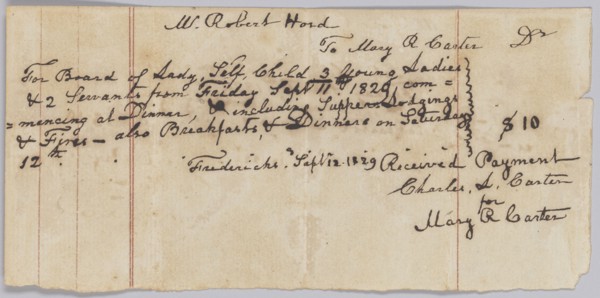 Mr. Robert Hord
To Mary R Carter Dr
For Board of Lady, Self, Child 3 Young Ladies
& 2 Servants from Friday Sept 11th 1829, com=
=mencing at Dinner, & including Suppers Lodgings
& Fires - also Breakfasts, & Dinners on Saturday
12th. $10
Fredericksg. Sept 12. 1829 Received Payment
Charles, L. Carter
for
Mary R Carter